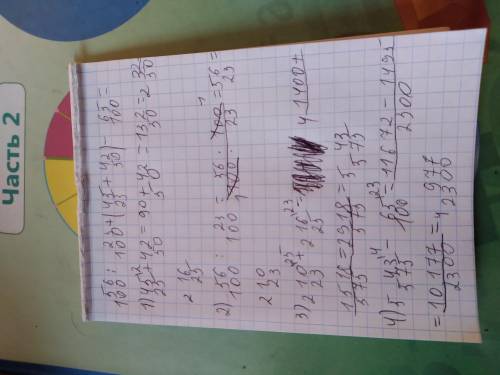 Часть 2
56/100 : 23/100 + (45/25 + 42/50) - 65/100 =
1) 45/25 + 42/50 = 90 + 42/50 = 132/50 = 2 32/50
2 16/25
2) 56/100 : 23/100 = 56/100 · 100/23 = 56/23 =
2 10/23
3) 2 10/23 + 2 16/25 =
= 2918/575 = 5 43/575
4) 5 43/575 - 65/100 = 11672 - 1495/2300
= 10177/2300 = 4 977/2300